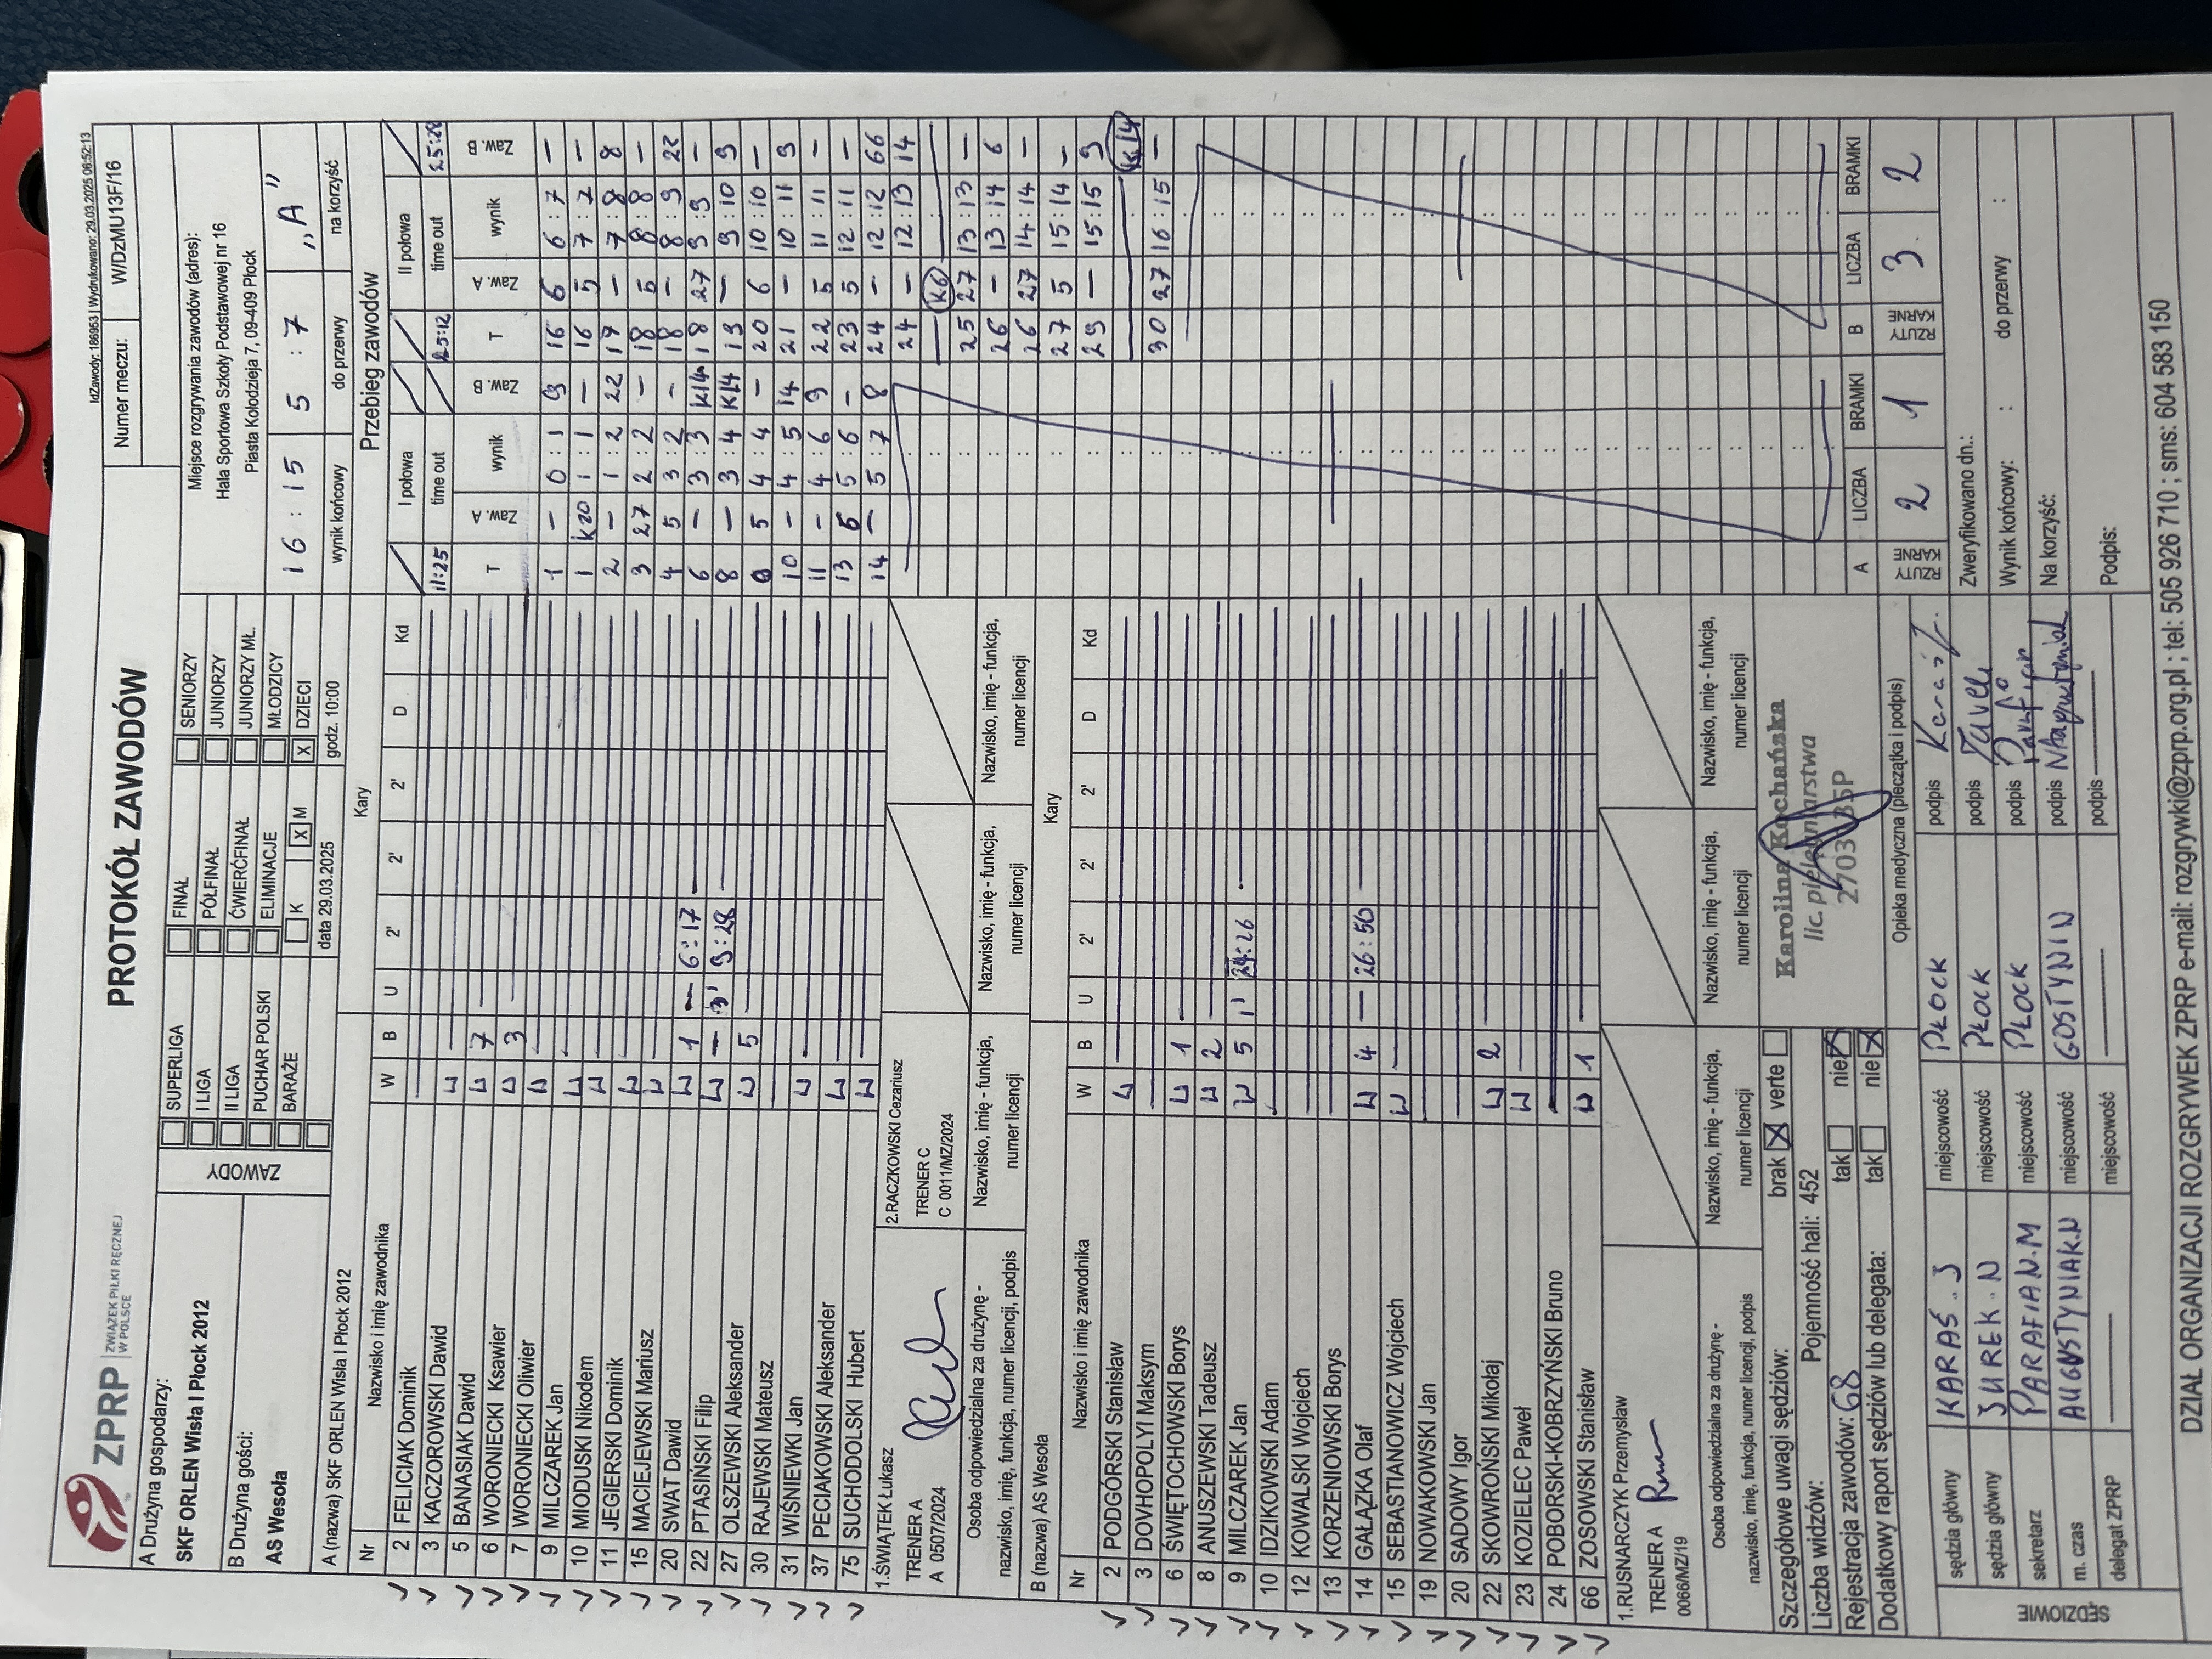 IdZawody: 186953 | Wydrukowano: 29.03.2025 06:52:13
ZPRP
ZWIĄZEK PIŁKI RĘCZNEJ
W POLSCE
PROTOKÓŁ ZAWODÓW
Numer meczu: W/DzMU13F/16
A Drużyna gospodarzy:
SKF ORLEN Wisła I Płock 2012
B Drużyna gości:
AS Wesoła
ZAWODY
SUPERLIGA
I LIGA
II LIGA
PUCHAR POLSKI
BARAŻE
FINAŁ
PÓŁFINAŁ
ĆWIERĆFINAŁ
ELIMINACJE
K X M
SENIORZY
JUNIORZY
JUNIORZY MŁ.
MŁODZICY
X DZIECI
data 29.03.2025 godz. 10:00
Miejsce rozgrywania zawodów (adres):
Hala Sportowa Szkoły Podstawowej nr 16
Piasta Kołodzieja 7, 09-409 Płock
16 : 15 5 : 7 "A"
wynik końcowy do przerwy na korzyść
A (nazwa) SKF ORLEN Wisła I Płock 2012 Kary
Nr Nazwisko i imię zawodnika W B U 2' 2' 2' D Kd
2 FELICIAK Dominik
3 KACZOROWSKI Dawid W
5 BANASIAK Dawid W 7
6 WORONIECKI Ksawier W 3
7 WORONIECKI Oliwier W
9 MILCZAREK Jan W
10 MIODUSKI Nikodem W
11 JEGIERSKI Dominik W
15 MACIEJEWSKI Mariusz W
20 SWAT Dawid W 1 – 6:17
22 PTASIŃSKI Filip W – 3' 9:28
27 OLSZEWSKI Aleksander W 5
30 RAJEWSKI Mateusz
31 WIŚNIEWKI Jan W
37 PECIAKOWSKI Aleksander W
75 SUCHODOLSKI Hubert W
1.ŚWIĄTEK Łukasz
TRENER A
A 0507/2024
2.RACZKOWSKI Cezariusz
TRENER C
C 0011/MZ/2024
Osoba odpowiedzialna za drużynę -
nazwisko, imię, funkcja, numer licencji, podpis
Nazwisko, imię - funkcja,
numer licencji
Nazwisko, imię - funkcja,
numer licencji
Nazwisko, imię - funkcja,
numer licencji
Nazwisko, imię - funkcja,
numer licencji
B (nazwa) AS Wesoła Kary
Nr Nazwisko i imię zawodnika W B U 2' 2' 2' D Kd
2 PODGÓRSKI Stanisław W
3 DOVHOPOLYI Maksym
6 ŚWIĘTOCHOWSKI Borys W 1
8 ANUSZEWSKI Tadeusz W 2
9 MILCZAREK Jan W 5 1' 24:26
10 IDZIKOWSKI Adam
12 KOWALSKI Wojciech
13 KORZENIOWSKI Borys
14 GAŁĄZKA Olaf W 4 – 26:50
15 SEBASTIANOWICZ Wojciech W
19 NOWAKOWSKI Jan
20 SADOWY Igor
22 SKOWROŃSKI Mikołaj W 2
23 KOZIELEC Paweł W
24 POBORSKI-KOBRZYŃSKI Bruno
66 ZOSOWSKI Stanisław W 1
1.RUSNARCZYK Przemysław
TRENER A
0066/MZ/19
Osoba odpowiedzialna za drużynę -
nazwisko, imię, funkcja, numer licencji, podpis
Nazwisko, imię - funkcja,
numer licencji
Nazwisko, imię - funkcja,
numer licencji
Nazwisko, imię - funkcja,
numer licencji
Nazwisko, imię - funkcja,
numer licencji
Szczegółowe uwagi sędziów: brak X verte
Liczba widzów: Pojemność hali: 452
Rejestracja zawodów: 68 tak nie X
Dodatkowy raport sędziów lub delegata: tak nie X
Karolina Kochańska
lic. pielęgniarstwa
Opieka medyczna (pieczątka i podpis)
SĘDZIOWIE
sędzia główny KARAŚ. J miejscowość PŁOCK podpis Karaś J.
sędzia główny JUREK. N miejscowość PŁOCK podpis
sekretarz PARAFIAN. M miejscowość PŁOCK podpis Parafian
m. czas AUGUSTYNIAK. N miejscowość GOSTYNIN podpis NAugustyniak
delegat ZPRP miejscowość podpis
Przebieg zawodów
I połowa II połowa
11:25 time out 25:12 time out 25:28
T Zaw. A wynik Zaw. B
1 – 0:1 9
1 K20 1:1 –
2 – 1:2 22
3 27 2:2 –
4 5 3:2 –
6 – 3:3 K14
8 – 3:4 K14
9 5 4:4 –
10 – 4:5 14
11 – 4:6 9
13 6 5:6 –
14 – 5:7 8
T Zaw. A wynik Zaw. B
16 6 6:7 –
16 5 7:7 –
17 – 7:8 8
18 5 8:8 –
18 – 8:9 22
18 27 9:9 –
19 – 9:10 9
20 6 10:10 –
21 – 10:11 9
22 5 11:11 –
23 5 12:11 –
24 – 12:12 66
24 – 12:13 14
K6
25 27 13:13 –
26 – 13:14 6
26 27 14:14 –
27 5 15:14 –
29 – 15:15 9
K14
30 27 16:15 –
A LICZBA BRAMKI B LICZBA BRAMKI
RZUTY KARNE 2 1 RZUTY KARNE 3 2
Zweryfikowano dn.:
Wynik końcowy: : do przerwy :
Na korzyść:
Podpis:
DZIAŁ ORGANIZACJI ROZGRYWEK ZPRP e-mail: rozgrywki@zprp.org.pl ; tel: 505 926 710 ; sms: 604 583 150